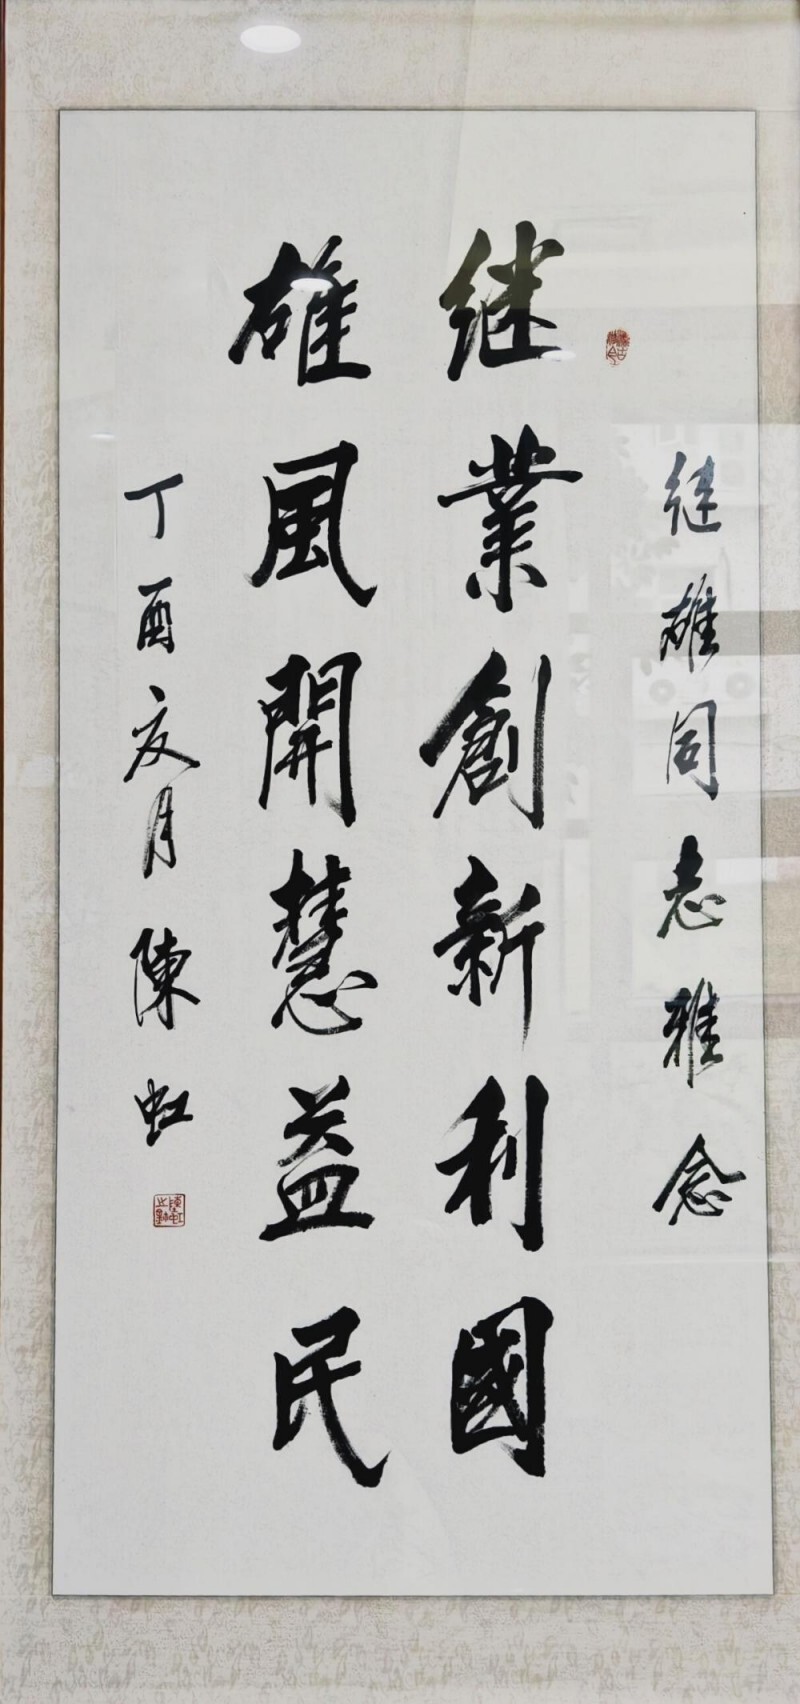 继雄同志雅念
继業創新利國
雄風開慧益民
丁酉夏月陳虹
陳虹之製